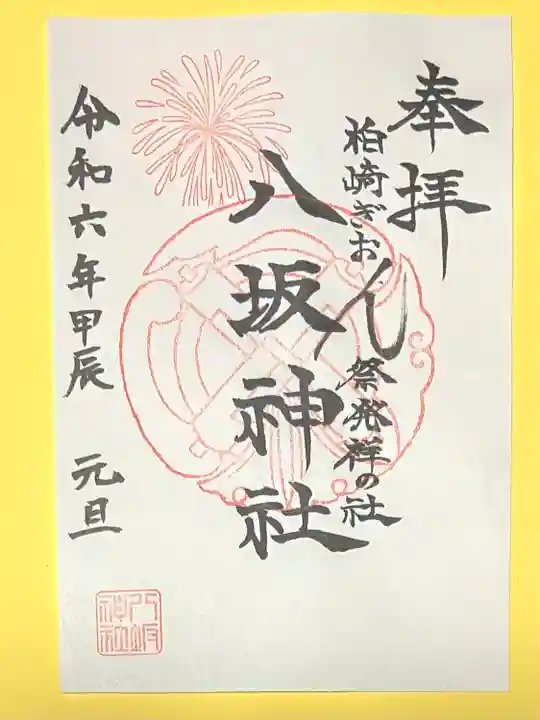 奉拝
柏崎ぎおん祭発祥の社
八坂神社
令和六年甲辰 元旦
八坂
神社